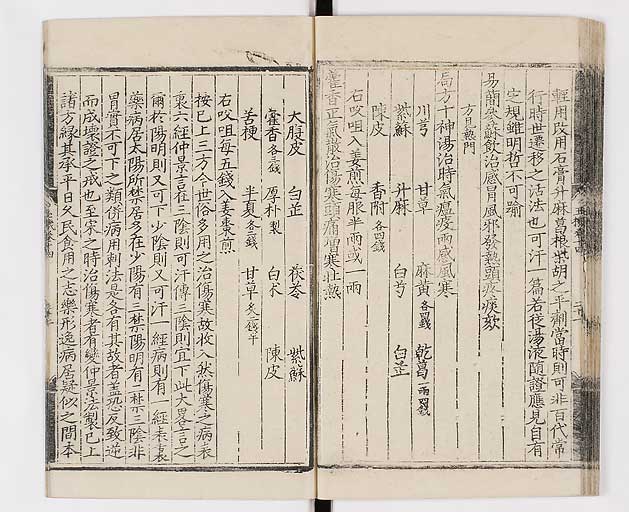 輕用改用石膏升麻葛根柴胡之平劑當時則可非百代常
行時世遷移之活法也可汗一篇若從湯液隨證應見自有
定規雖明哲不可踰
易簡參蘇飲治感冒風邪發熱頭疼痰欬
方見熱門
局方十神湯治時氣瘟疫兩感風寒
川芎 甘草 麻黃各四錢 乾葛一兩四錢
紫蘇 升麻 白芍 白芷
陳皮 香附各四錢
右㕮咀入姜煎每服半兩或一兩
藿香正氣散治傷寒頭痛增寒壯熱
大腹皮 白芷 茯苓 紫蘇
藿香各三錢 厚朴製 白朮 陳皮
苦梗 半夏各二錢 甘草炙二錢半
右㕮咀每五錢入姜棗煎
按已上三方今世俗多用之治傷寒故收入然傷寒之病表
裏六經仲景言在三陰則可汗傳三陰則宜下此大畧言之
爾於陽明則又可下少陰則又可汗一經病則有一經表裏
藥病居太陽所禁居多在少陽有三禁陽明有二禁三陰非
胃實不可下之類併病用刺法是各有其故者盖恐反致逆
而成壞證之戒也至宋之時治傷寒者有變仲景法製已上
諸方緣其承平日久民食用之志樂形逸病居疑似之間本